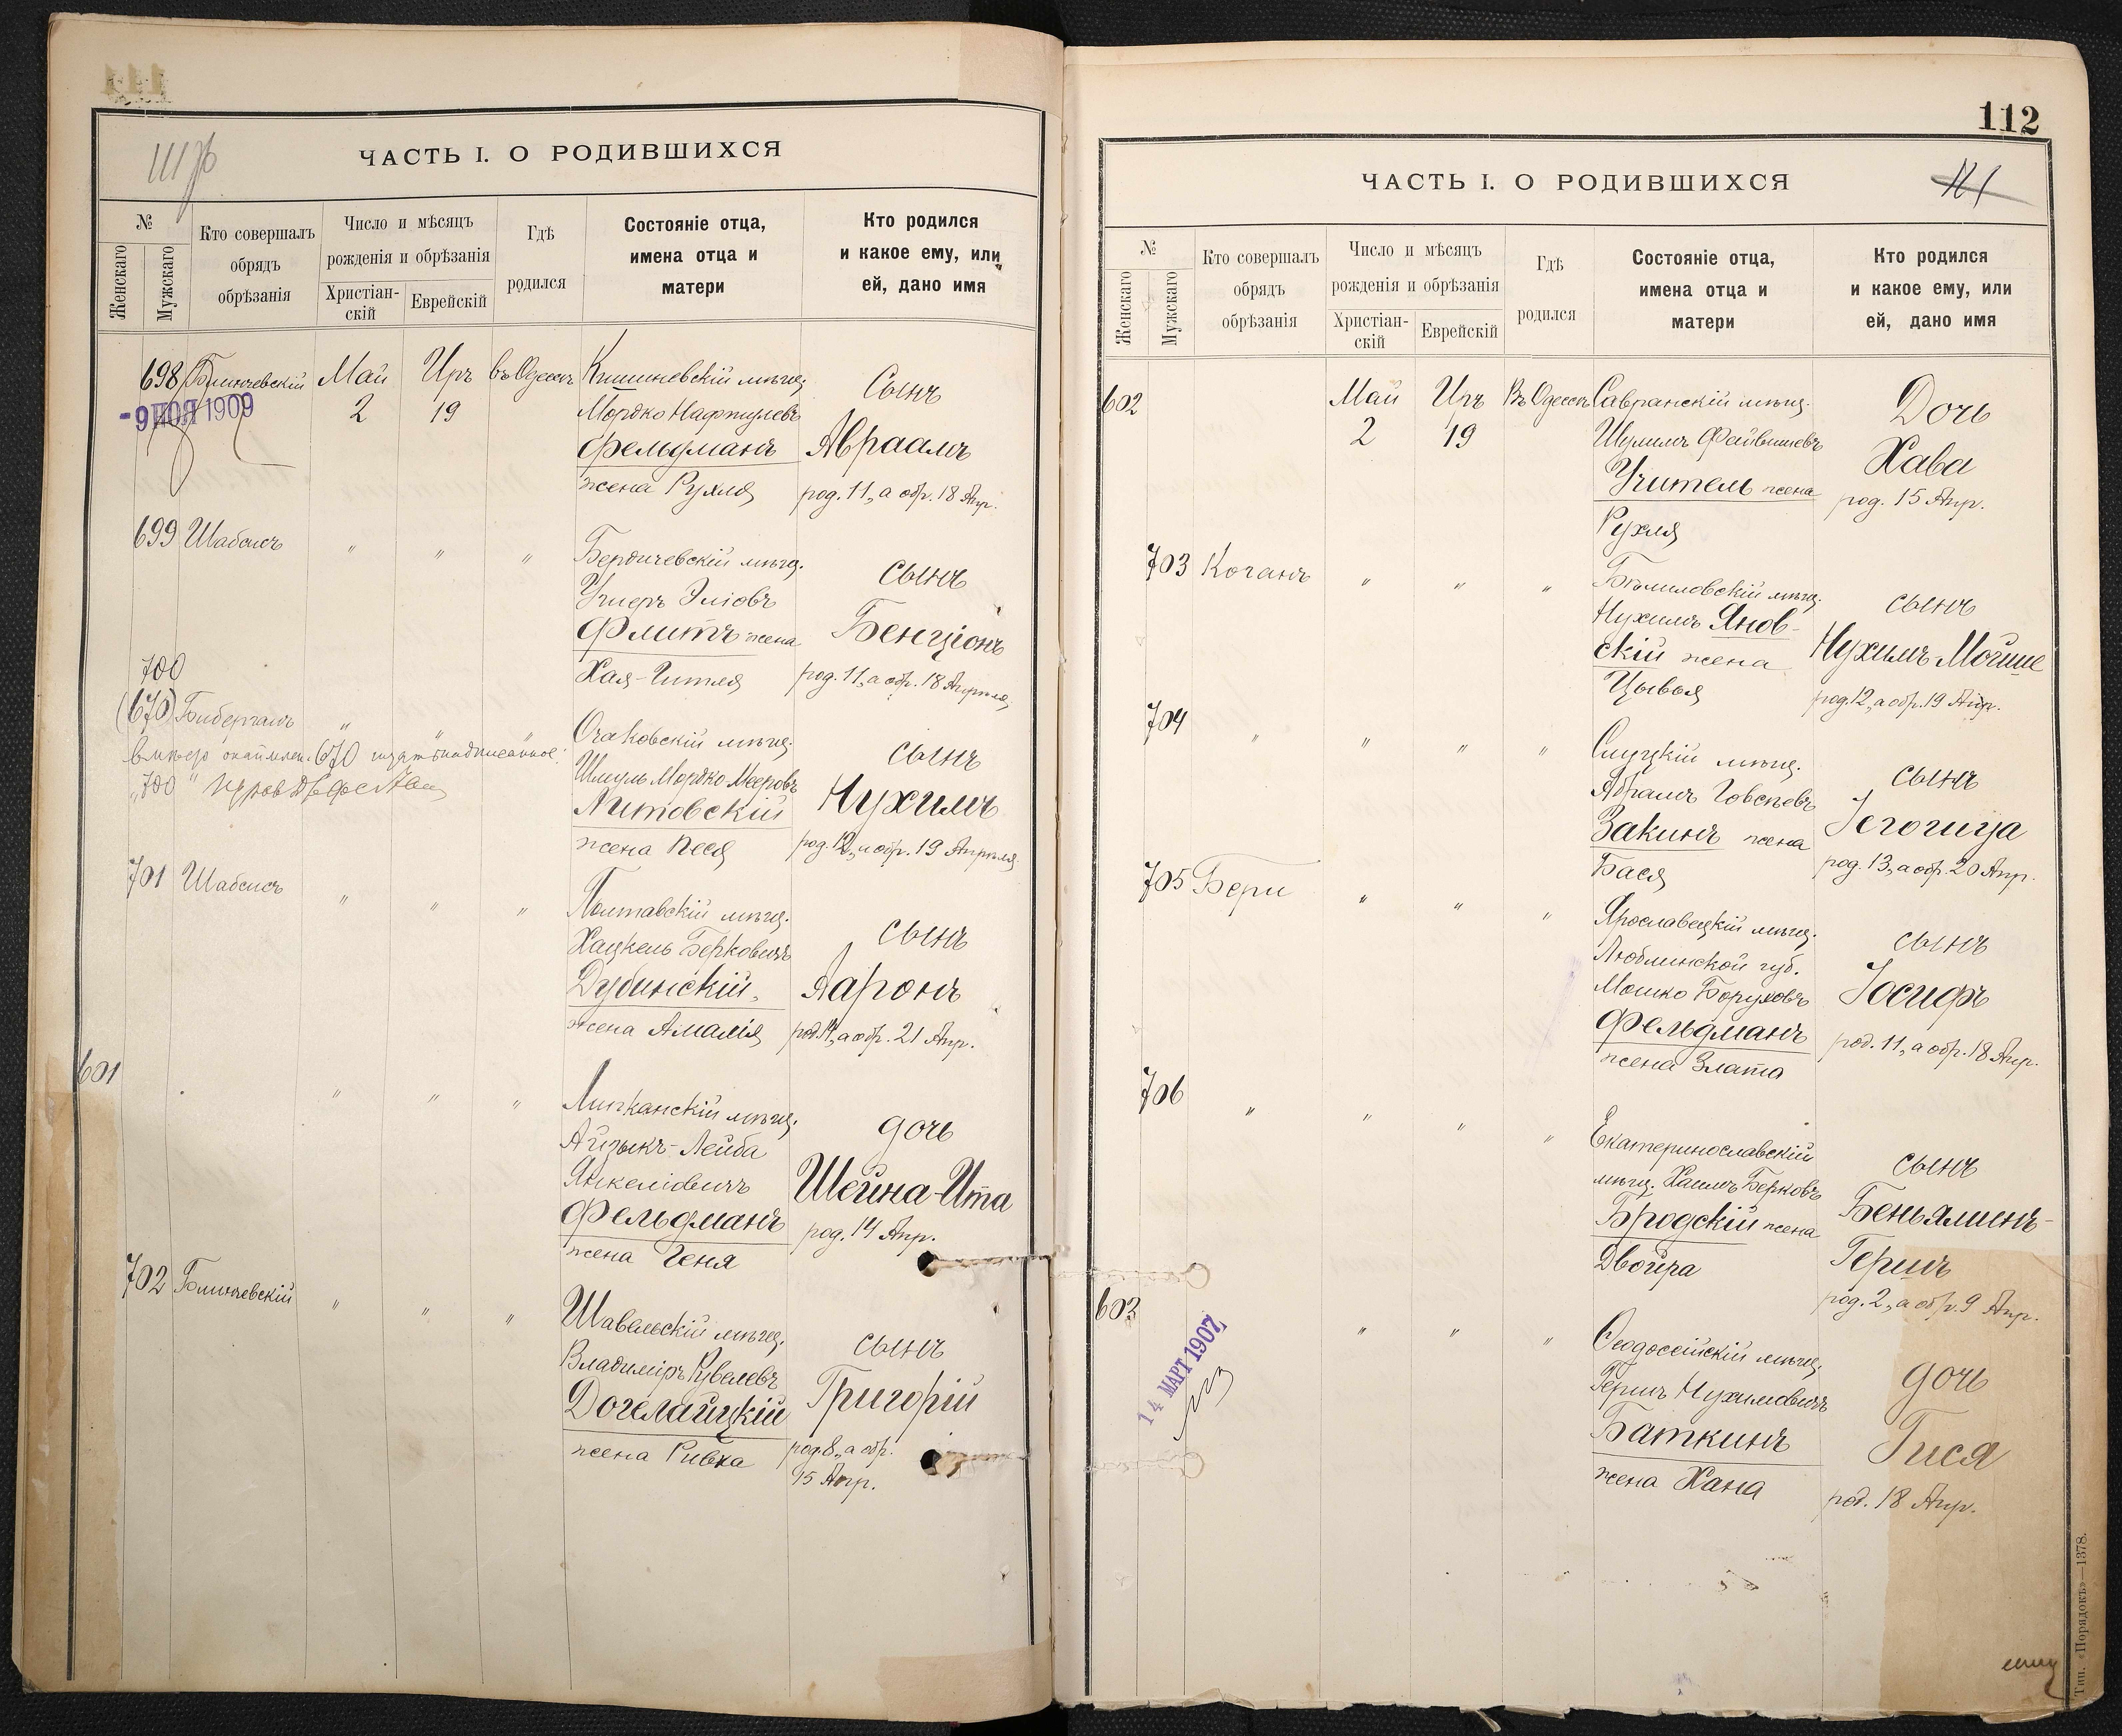 ЧАСТЬ I. О РОДИВШИХСЯ
№
Женскаго
Мужскаго
Кто совершалъ
обрядъ
обрѣзанія
Число и мѣсяцъ
рожденія и обрѣзанія
Христіан-
скій
Еврейскій
Гдѣ
родился
Состояніе отца,
имена отца и
матери
Кто родился
и какое ему, или
ей, дано имя
698 Май Иръ въ Одессѣ Кишиневскій мѣщ. Сынъ
2 19 Мордко Нафтулевъ
- 9 НОЯ 1909
Фельдманъ Авраамъ
жена Рухля род. 11, а обр. 18 Апр.
699 Шабсисъ " " " Бердичевскій мѣщ. сынъ
Ушеръ Эліовъ
Флитъ жена Бенціонъ
Хая-Гитля род. 11, а обр. 18 Апрѣля
700
(670) Бибергалъ " " " Очаковскій мѣщ. сынъ
Шмуль Мордко-Мееровъ
Литовскій Нухимъ
жена Песя род. 12, а обр. 19 Апрѣля
701 Шабсисъ " " " Полтавскій мѣщ. сынъ
Хацкель Берковичъ
Дубинскій Ааронъ
жена Амалія род. 14, а обр. 21 Апр.
601 " " " Липканскій мѣщ. дочь
Айзыкъ-Лейба
Янкеліовичъ Шейна-Ита
Фельдманъ род. 14 Апр.
жена Геня
702 Блинчевскій " " " Шавельскій мѣщ. сынъ
Владиміръ Рувелевъ
Догелайцкій Григорій
жена Ривка род. 8, а обр.
15 Апр.
112
ЧАСТЬ I. О РОДИВШИХСЯ
№
Женскаго
Мужскаго
Кто совершалъ
обрядъ
обрѣзанія
Число и мѣсяцъ
рожденія и обрѣзанія
Христіан-
скій
Еврейскій
Гдѣ
родился
Состояніе отца,
имена отца и
матери
Кто родился
и какое ему, или
ей, дано имя
602 Май Иръ Въ Одессѣ Савранскій мѣщ. Дочь
2 19 Шулимъ Файвишевъ
Учитель жена Хава
Рухля род. 15 Апр.
703 Коганъ " " " мѣщ. сынъ
Нухимъ Янов-
скій жена Нухимъ-Мойше
Цывья род. 12, а обр. 19 Апр.
704 " " " " Слуцкій мѣщ. сынъ
Абрамъ Іовсѣевъ
Закинъ жена
Бася род. 13, а обр. 20 Апр.
705 Бери " " " Ярославецкій мѣщ. сынъ
Люблинской губ.
Мошко Боруховъ Іосифъ
Фельдманъ род. 11, а обр. 18 Апр.
жена Злата
706 " " " " Екатеринославскій сынъ
мѣщ. Хаимъ Берковъ
Бродскій жена Беньяминъ-
Двойра Гершъ
род. 2, а обр. 9 Апр.
603 " " " Ѳеодосійскій мѣщ. дочь
14 МАРТ 1907
Гершъ Нухимовичъ
Баткинъ Гися
жена Хана род. 18 Апр.
Тип. «Порядокъ»—1378.